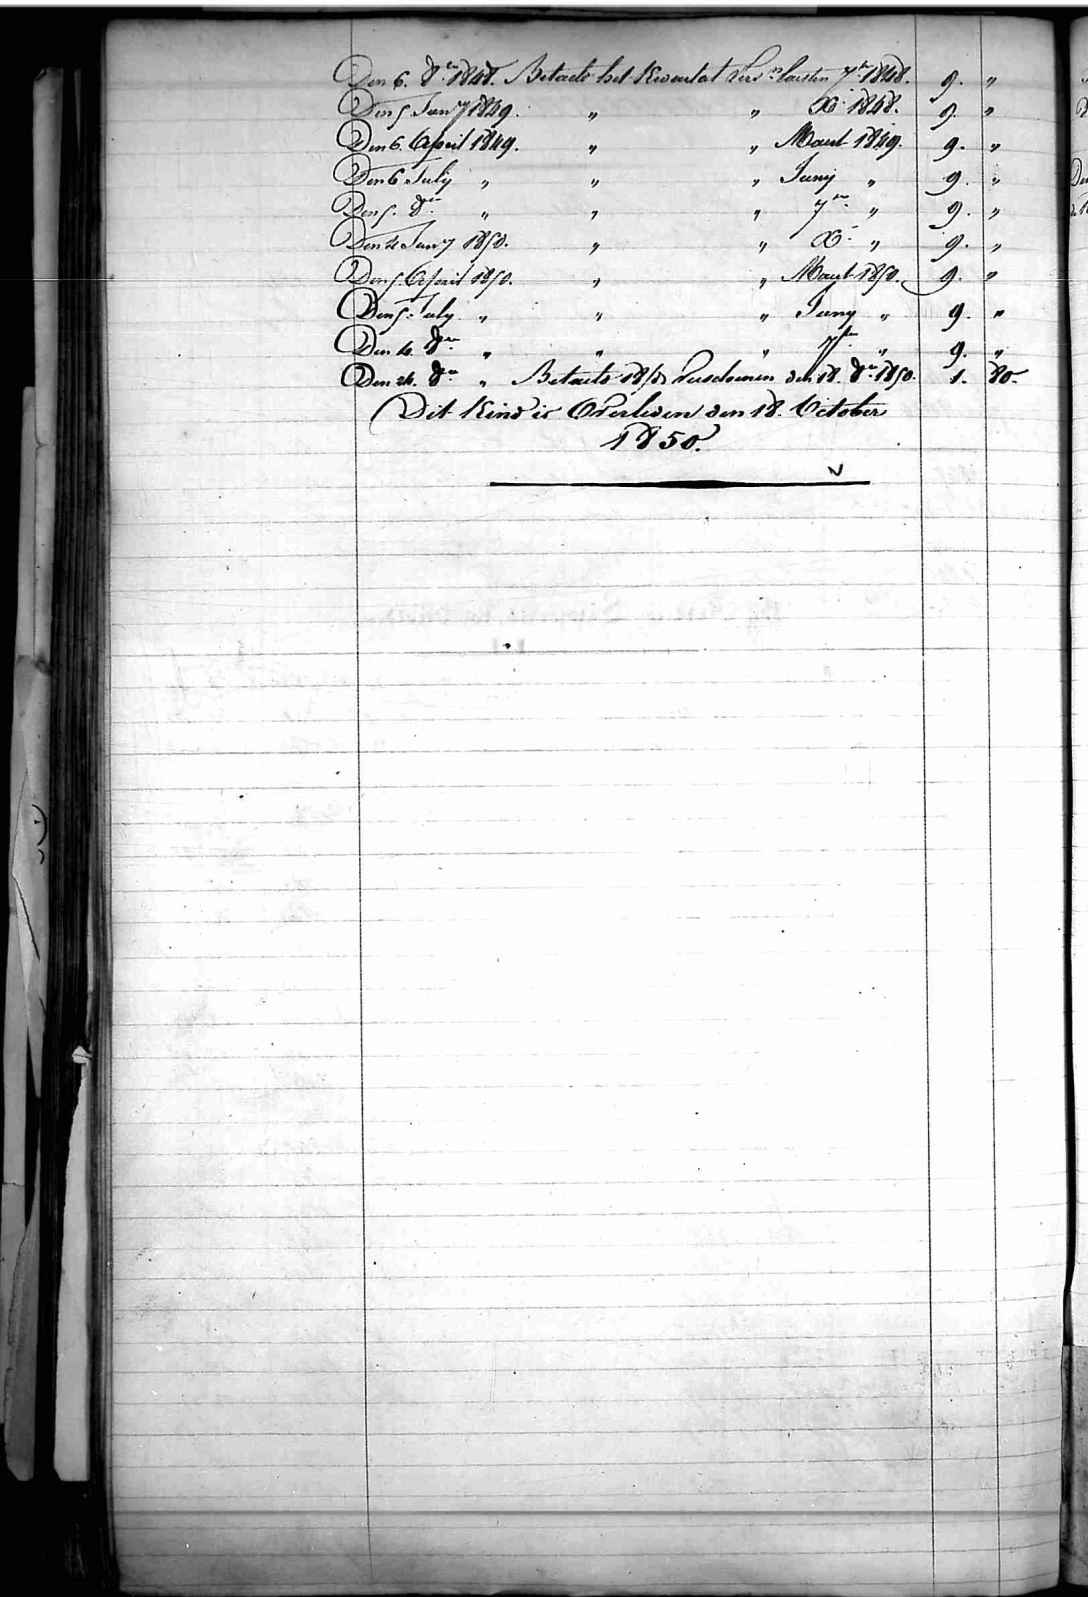 Den 6. 8br 1848. Betaald het Kwartaal Vers. laasten 7br 1848. 9. "
Den 5 Jany 1849. " " Xr 1848. 9. "
Den 6 April 1849. " " Maart 1849. 9. "
Den 6 July " " " Juny " 9. "
Den 5. 8br " " " 7br " 9. "
Den 4 Jany 1850. " " Xr " 9. "
Den 5 April 1850. " " Maart 1850. 9. "
Den 5. July " " " Juny " 9. "
Den 4. 8br " " " 7br " 9. "
Den 24. 8br " Betaald 18/d Verschenen den 18. 8br 1850. 1. 80.
Dit Kind is Overleden den 18. October
1850.